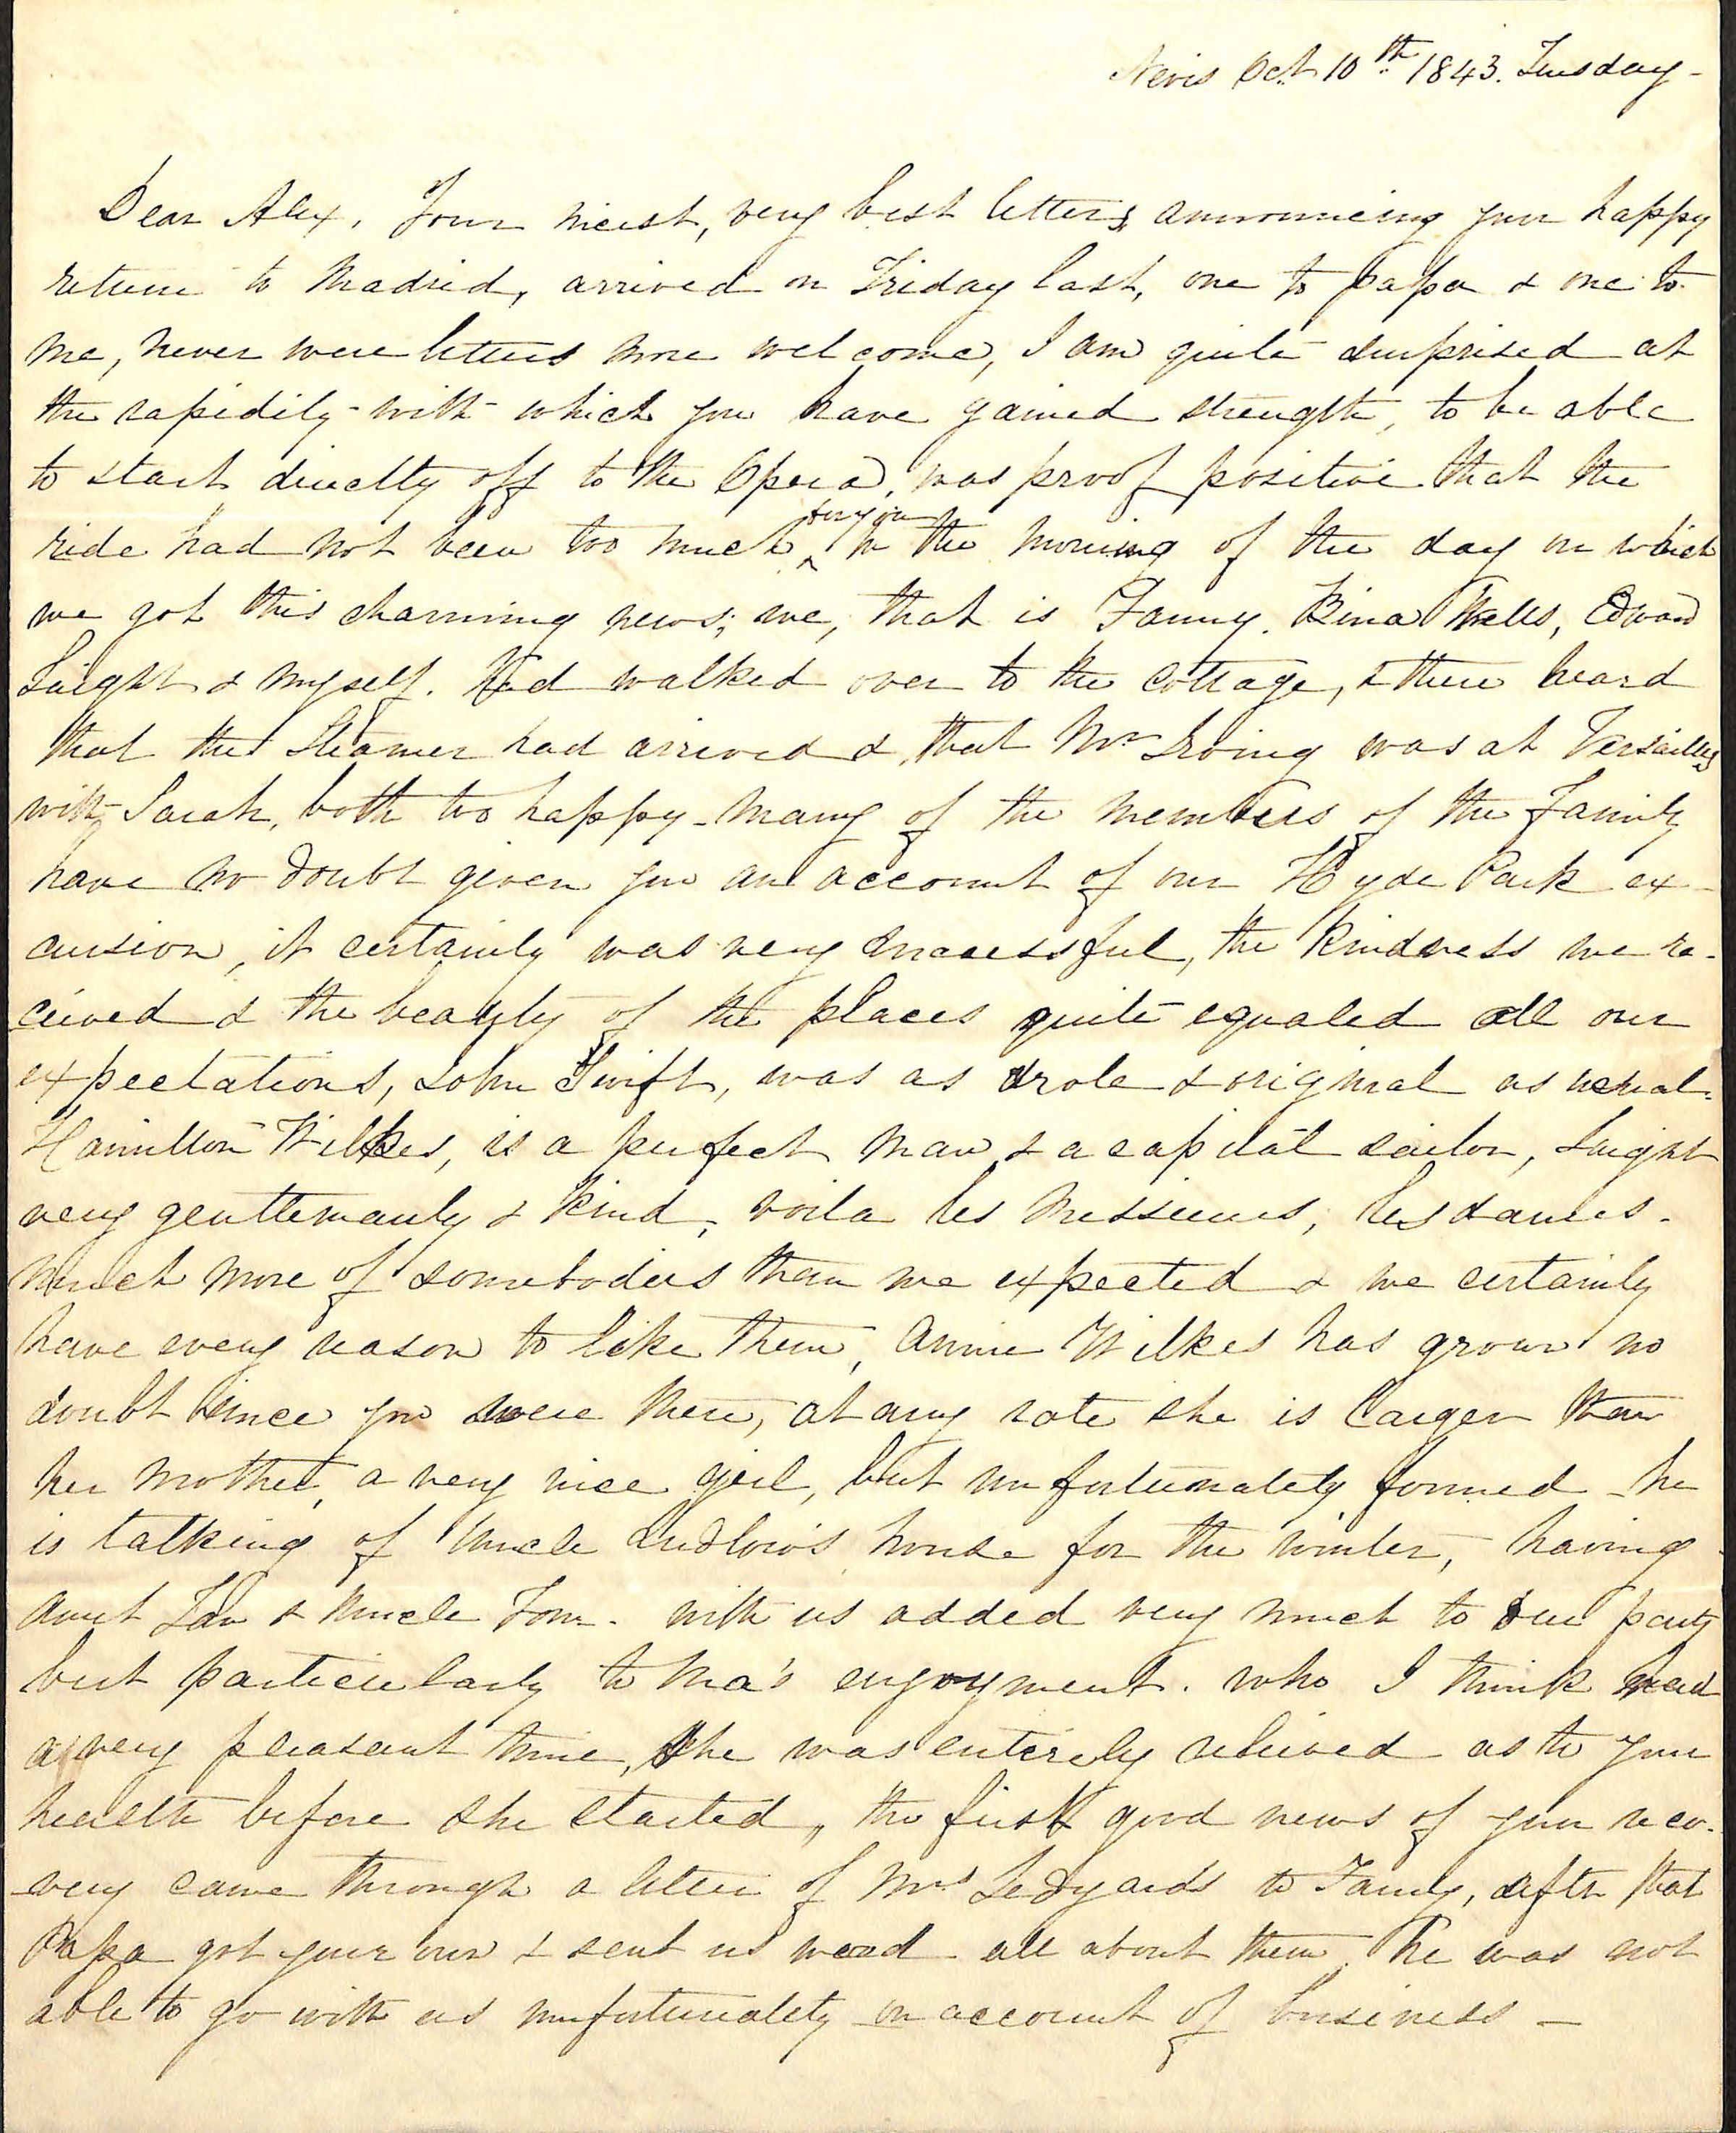 Nevis Oct 10th 1843. Tuesday -
Dear Alex, Your nicest, very best letters, announcing your happy
return to Madrid, arrived on Friday last, one to papa & one to
me, never were letters more welcome, I am quite surprised at
the rapidity with which you have gained strength, to be able
to start directly off to the Opera, was proof positive that the
ride had not been too much ^ for you In the morning of the day on which
we got this charming news; we, that is Fanny, Bina Wells, Edward
Laight & myself. Had walked over to the cottage, & there heard
that the Steamer had arrived & that Mr Irving was at Versailles
with Sarah, both too happy - many of the members of the Family
have no doubt given you an account of our Hyde Park ex-
cursion, it certainly was very successful, the kindness we re-
ceived & the beauty of the places quite equaled all our
expectations, John Swift, was as drole & original as usual.
Hamilton Wilkes, is a perfect man & a capital sailor, Laight
very gentlemanly & kind, voila les messieurs, les dames.
much more of somebodies than we expected & we certainly
have every reason to like them, Annie Wilkes has grown no
doubt since you were there, at any rate she is larger than
her mother, a very nice girl, but unfortunately formed - he
is talking of Uncle Ludlow's house for the winter, - having
Aunt & Uncle Tom. with us added very much to our party
but particularly to Ma's enjoyment. who I think had
a very pleasant time, She was entirely relieved as to your
health before she started, the first good news of your reco-
-very came through a letter of Mrs Ledyards to Fanny, after that
Papa got your own & sent us word all about them. he was not
able to go with us unfortunately on account of business -